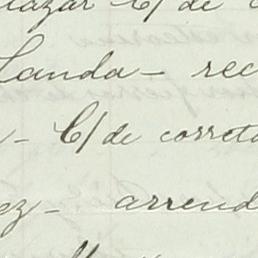 alazar C/ de
Landa - rec
- C/ de correta
ez - arrend